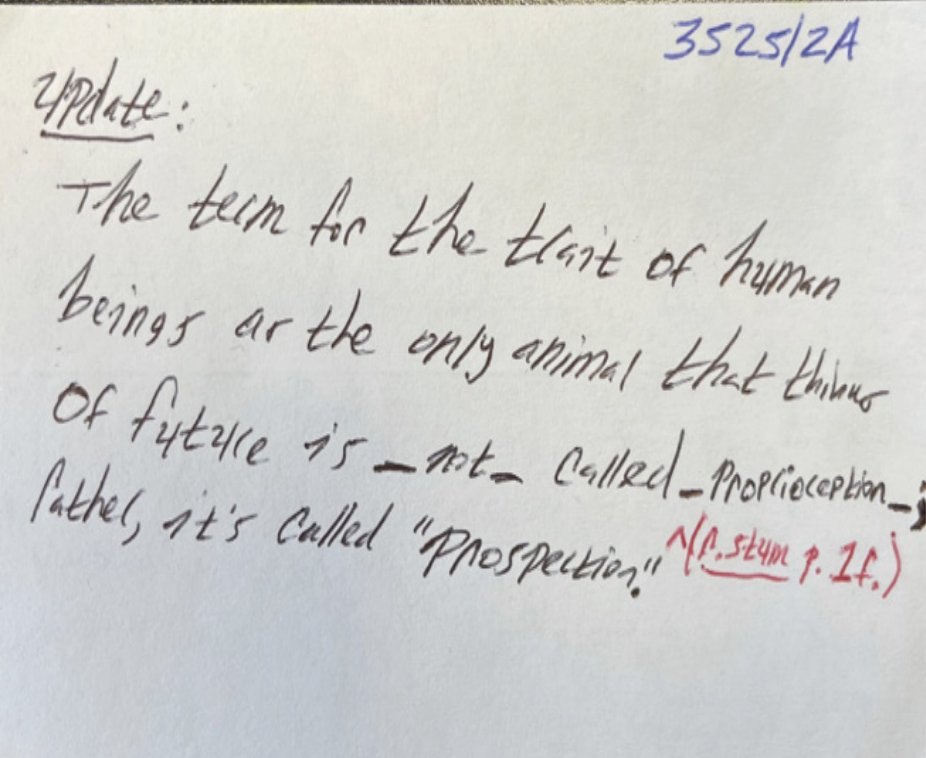 3525/2A
Update:
The term for the trait of human
beings as the only animal that thinks
of future is _not_ called _proprioception_;
rather, it's called "Prospection."^(r. stum p. 1f.)